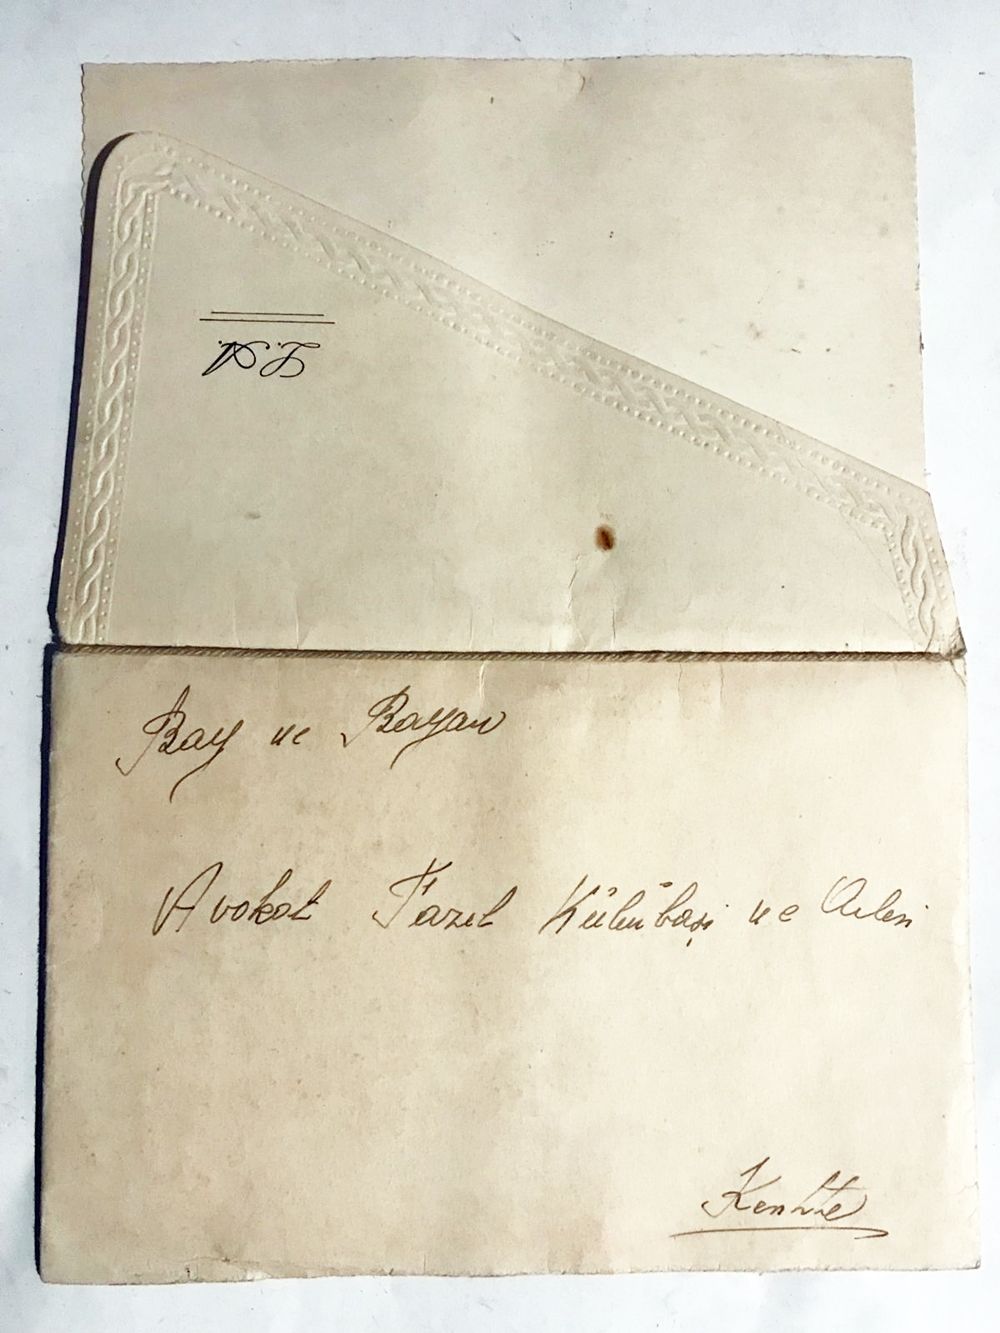 L. A.
Bay ve Bayan
Avokat Fazıl Külübaşi ve Ailesi
Kentte